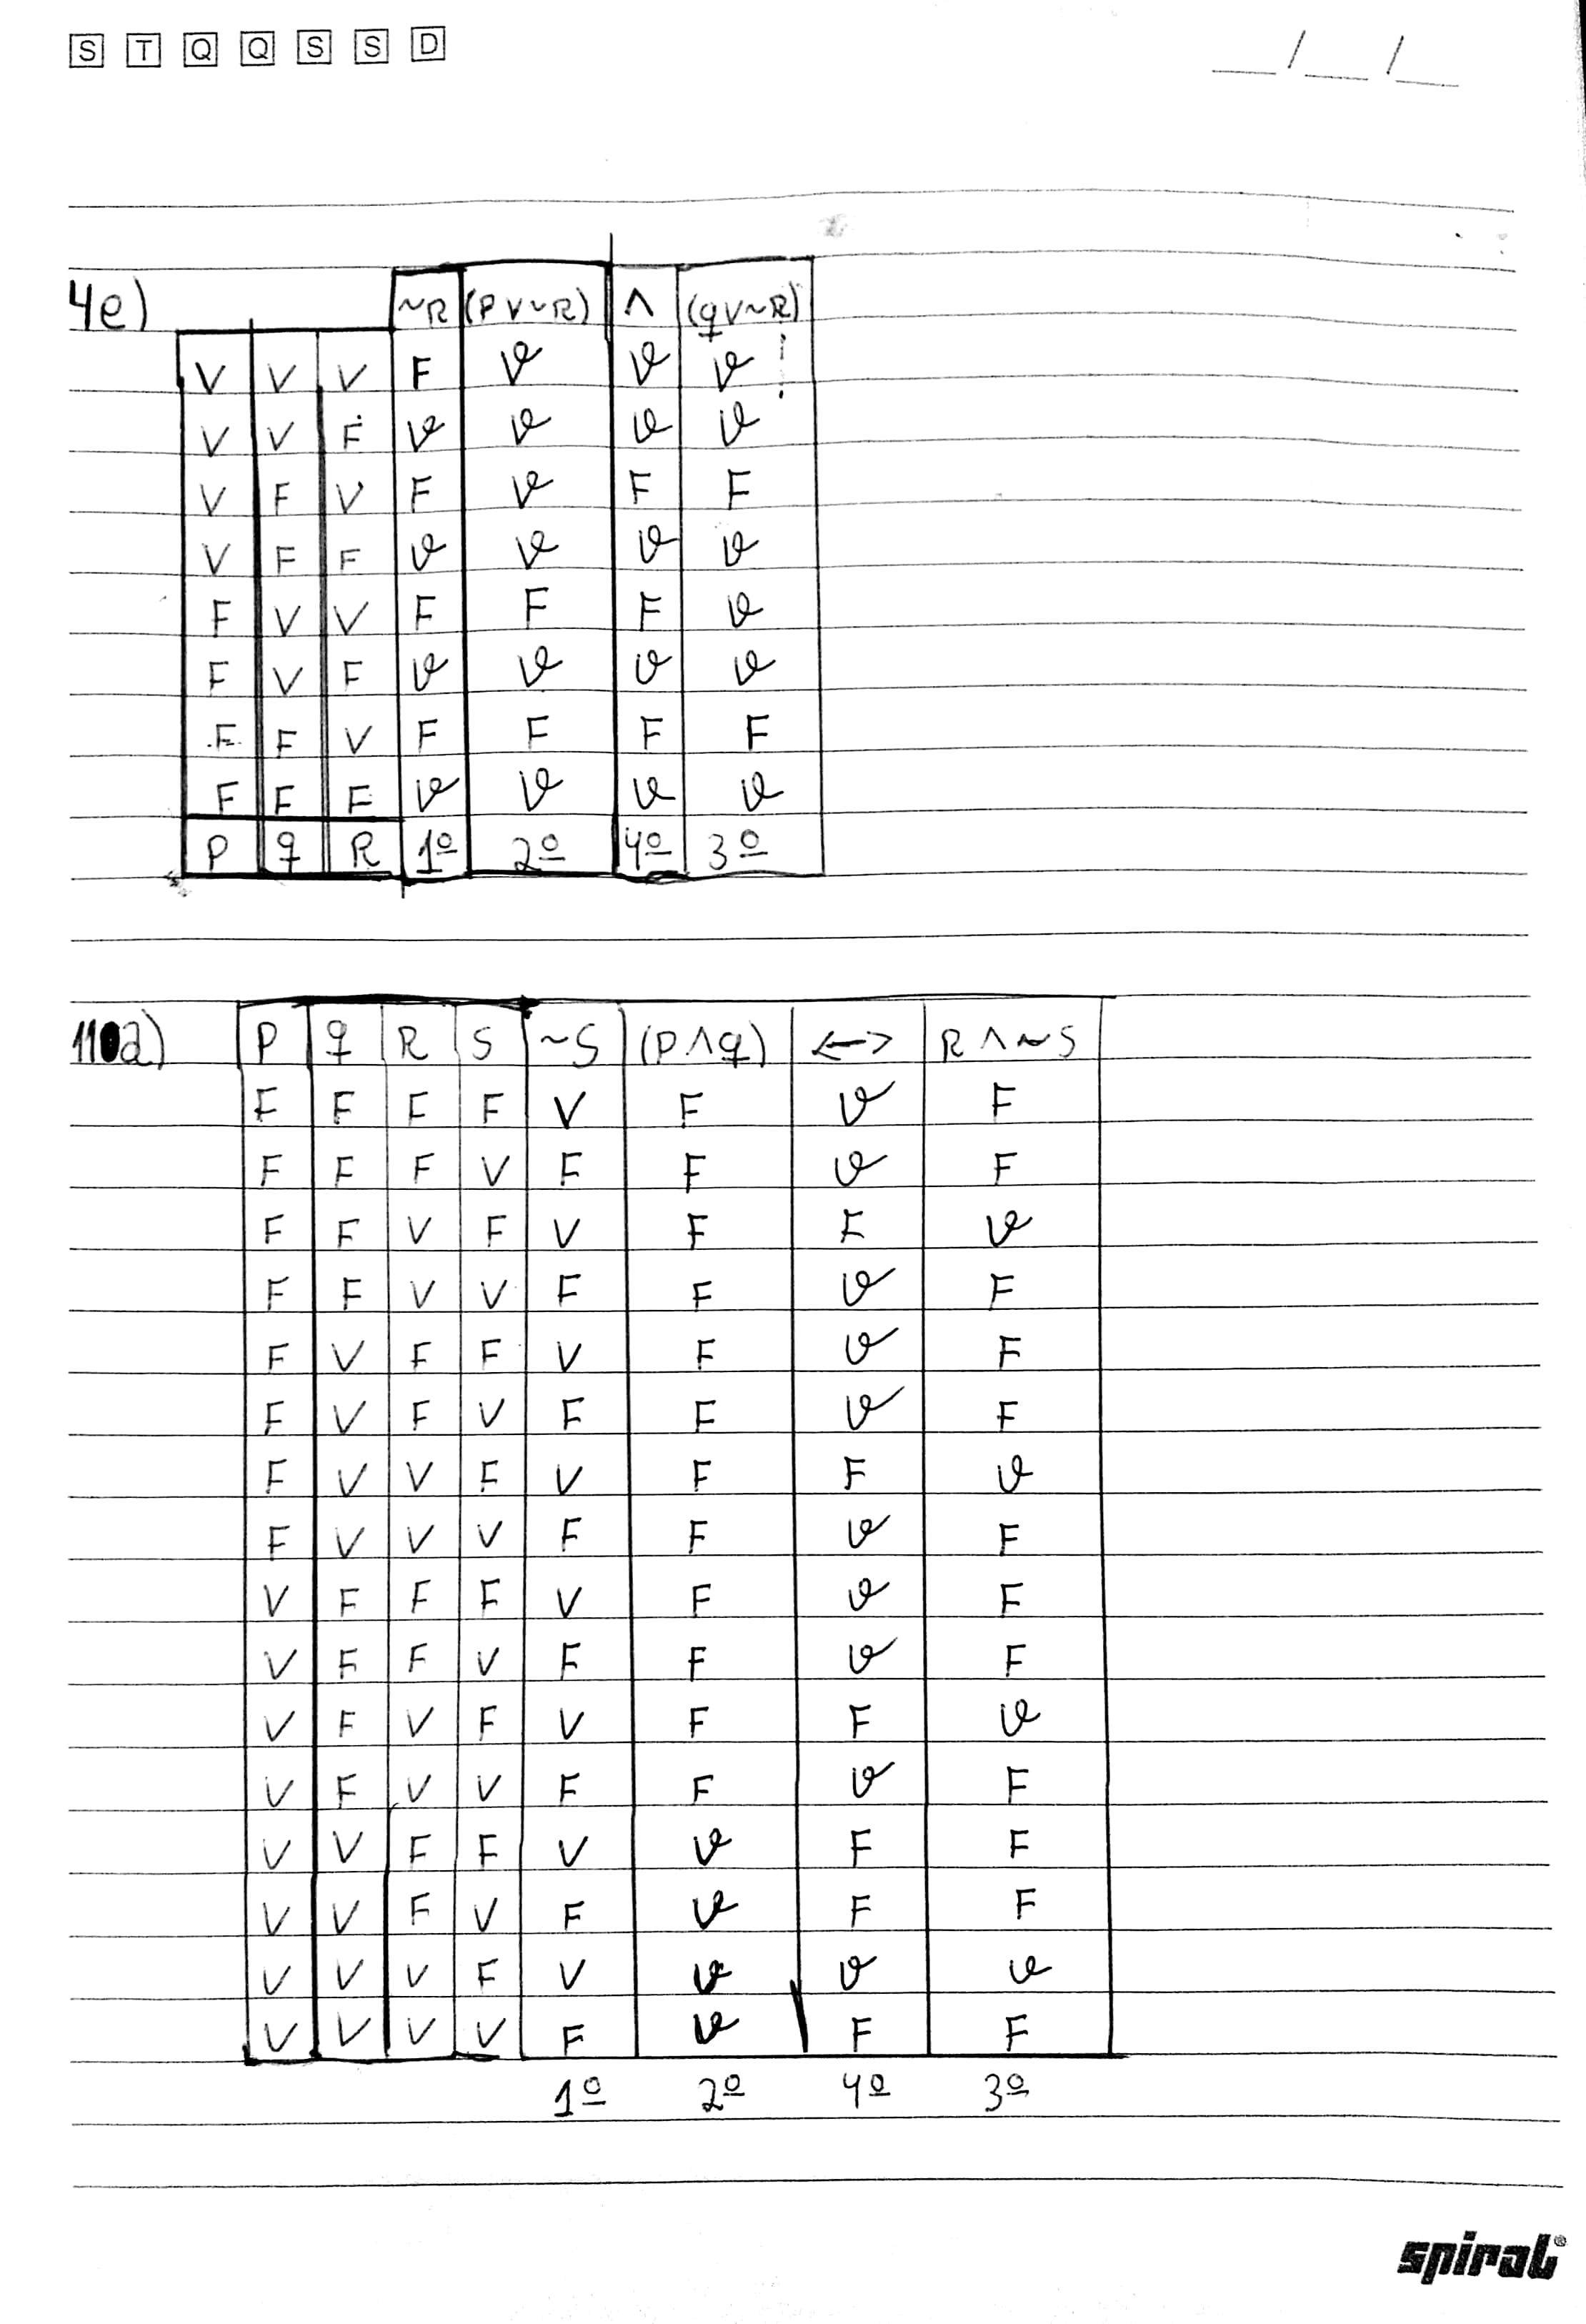 S T Q Q S S D
__/__/__
4e) ~R (P V ~R) ^ (q V ~R)
V V V F V V V
V V F V V V V
V F V F V F F
V F F V V V V
F V V F F F V
F V F V V V V
F F V F F F F
F F F V V V V
P q R 1º 2º 4º 3º
11 a) P q R S ~S (P ^ q) <-> R ^ ~S
F F F F V F V F
F F F V F F V F
F F V F V F F V
F F V V F F V F
F V F F V F V F
F V F V F F V F
F V V F V F F V
F V V V F F V F
V F F F V F V F
V F F V F F V F
V F V F V F F V
V F V V F F V F
V V F F V V F F
V V F V F V F F
V V V F V V V V
V V V V F V F F
1º 2º 4º 3º
spiral®